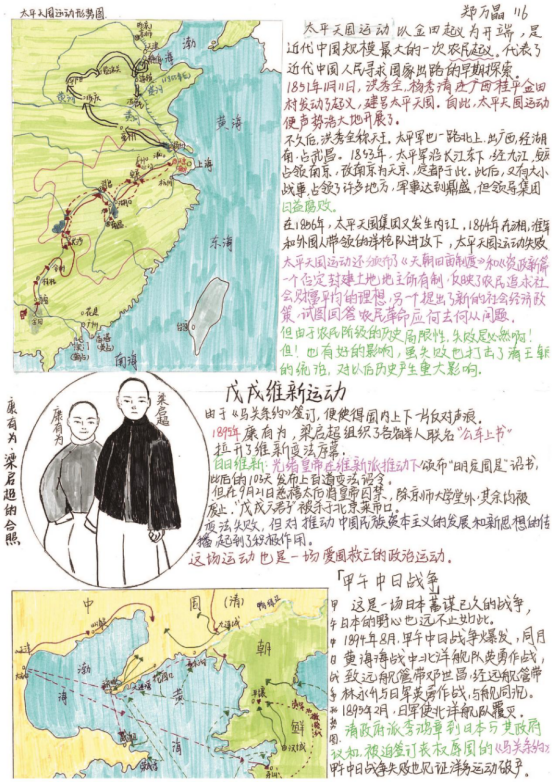 太平天国运动形势图
郑万晶 116
太平天国运动以金田起义为开端，是
近代中国规模最大的一次农民起义。代表了
近代中国人民寻求国家出路的早期探索。
1851年1月11日，洪秀全，杨秀清在广西桂平金田
村发动了起义，建号太平天国。自此，太平天国运动
便声势浩大地开展了。
不久后，洪秀全称天王。太平军也一路北上，出广西，经湖
南，占武昌。1853年，太平军沿长江东下，经九江，安庆
占领南京，改南京为天京，定都于此。此后，又有大小
战事，占领了许多地方，军事达到鼎盛，但领导集团
日益腐败。
在1856年，太平天国集团又发生内讧，1864年在湘，淮军
和外国人带领的洋枪队进攻下，太平天国运动失败
太平天国运动还颁布了《天朝田亩制度》和《资政新篇》
一个否定封建土地地主所有制，反映了农民追求社
会财富平均的理想，另一个提出了新的社会经济政
策，试图回答农民革命应何去何从问题。
但由于农民阶级的历史局限性，失败是必然啊！
但！也有好的影响，虽失败也打击了清王朝
的统治，对以后历史产生重大影响。
渤
黄海
上海
东海
南海
戊戌维新运动
由于《马关条约》签订，便使得国内上下一片反对声浪。
1895年康有为，梁启超组织了各省举人联名“公车上书”
拉开了维新变法序幕。
百日维新：光绪皇帝在维新派推动下颁布“明定国是”诏书，
此后的103天发布上百道变法诏令。
但在9月21日慈禧太后将皇帝囚禁，除京师大学堂外，其余均被
废止，“戊戌六君子”被杀于北京菜市口。
变法失败，但对推动中国民族资本主义的发展和新思想的传
播，起到了积极作用。
这场运动也是一场爱国救亡的政治运动。
康有为
梁启超
康有为 梁启超的合照
「甲午中日战争」
这是一场日本蓄谋已久的战争，
日本的野心也远不止如此。
1894年8月，甲午中日战争爆发，同月
黄海海战中北洋舰队英勇作战，
致远舰管带邓世昌，经远舰管带
林永升与日军英勇作战，与舰同沉。
1895年2月，日军使北洋舰队覆灭。
清政府派李鸿章到日本与其政府
议和，被迫签订丧权辱国的《马关条约》
甲午中日战争失败也见证洋务运动破产。
中
国
(清)
朝
鲜
渤
海
黄
海